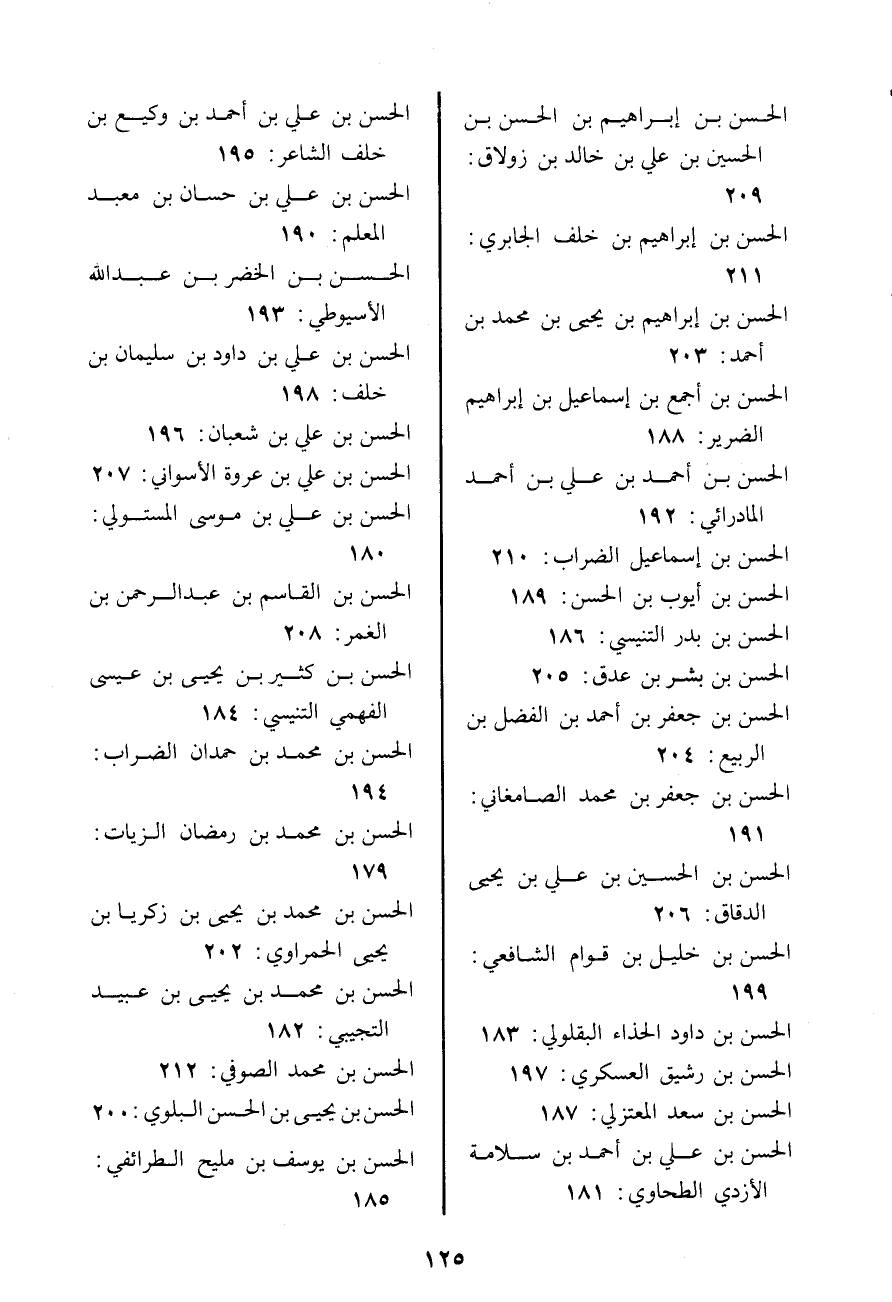 الحسن بن إبراهيم بن الحسن بن
الحسين بن علي بن خالد بن زولاق:
٢٠٩
الحسن بن إبراهيم بن خلف الجابري:
٢١١
الحسن بن إبراهيم بن يحيى بن محمد بن
أحمد: ٢٠٣
الحسن بن أجمع بن إسماعيل بن إبراهيم
الضرير: ١٨٨
الحسن بن أحمد بن علي بن أحمد
المادرائي: ١٩٢
الحسن بن إسماعيل الضراب: ٢١٠
الحسن بن أيوب بن الحسن: ١٨٩
الحسن بن بدر التنيسي: ١٨٦
الحسن بن بشر بن عدق: ٢٠٥
الحسن بن جعفر بن أحمد بن الفضل بن
الربيع: ٢٠٤
الحسن بن جعفر بن محمد الصامغاني:
١٩١
الحسن بن الحسين بن علي بن يحيى
الدقاق: ٢٠٦
الحسن بن خليل بن قوام الشافعي:
١٩٩
الحسن بن داود الحذاء البقلولي: ١٨٣
الحسن بن رشيق العسكري: ١٩٧
الحسن بن سعد المعتزلي: ١٨٧
الحسن بن علي بن أحمد بن سلامة
الأزدي الطحاوي: ١٨١
الحسن بن علي بن أحمد بن وكيع بن
خلف الشاعر: ١٩٥
الحسن بن علي بن حسان بن معبد
المعلم: ١٩٠
الحسن بن الخضر بن عبدالله
الأسيوطي: ١٩٣
الحسن بن علي بن داود بن سليمان بن
خلف: ١٩٨
الحسن بن علي بن شعبان: ١٩٦
الحسن بن علي بن عروة الأسواني: ٢٠٧
الحسن بن علي بن موسى المستولي:
١٨٠
الحسن بن القاسم بن عبدالرحمن بن
الغمر: ٢٠٨
الحسن بن كثير بن يحيى بن عيسى
الفهمي التنيسي: ١٨٤
الحسن بن محمد بن حمدان الضراب:
١٩٤
الحسن بن محمد بن رمضان الزيات:
١٧٩
الحسن بن محمد بن يحيى بن زكريا بن
يحيى الحمراوي: ٢٠٢
الحسن بن محمد بن يحيى بن عبيد
التجيبي: ١٨٢
الحسن بن محمد الصوفي: ٢١٢
الحسن بن يحيى بن الحسن البلوي: ٢٠٠
الحسن بن يوسف بن مليح الطرائفي:
١٨٥
١٢٥